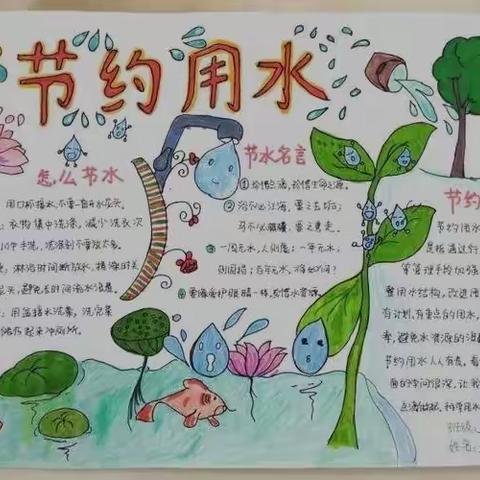 节约用水
怎么节水
用口杯接水,不要一直开水龙头,
衣物集中洗涤,减少洗衣次
小件手洗,洗涤剂不要放太多。
淋浴时间断放水,搓澡时关
头,避免长时间满水温
用盆接水洗菜,洗完菜
储存起来冲厕所。
节水名言
① 珍惜点滴,珍惜生命之源。
② 浴不必江海,要之去垢;
马不必骐骥,要之善走。
③ 一周无水,人则危;一年无水,
则国损;百年无水,将如何?
④ 要像爱护眼睛一样,珍惜水资源。
节约
节约用水
是指通过行
等管理手段加强
整用水结构,改进用
有计划、有重点的用水,
率,避免水资源的浪
节约用水人人有责,看
面的学问很深,让我
点滴做起,科学用水
班级:
姓名: